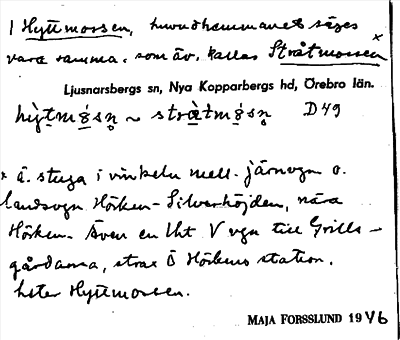 1 Hyttmossen, huvudhemmanet säges
vara samma, som äv. kallas Stråtmossen x
Ljusnarsbergs sn, Nya Kopparbergs hd, Örebro län.
hỳt̬mǿsn̥ ~ stràtmǿsn̥ D 49
x ä. stuga i vinkeln mell. järnvgn o.
landsvgn Hörken-Silverhöjden, nära
Hörken. Även en lht V vgn till Grills-
gårdarna, strax Ö Hörkens station,
heter Hyttmossen.
MAJA FORSSLUND 1946